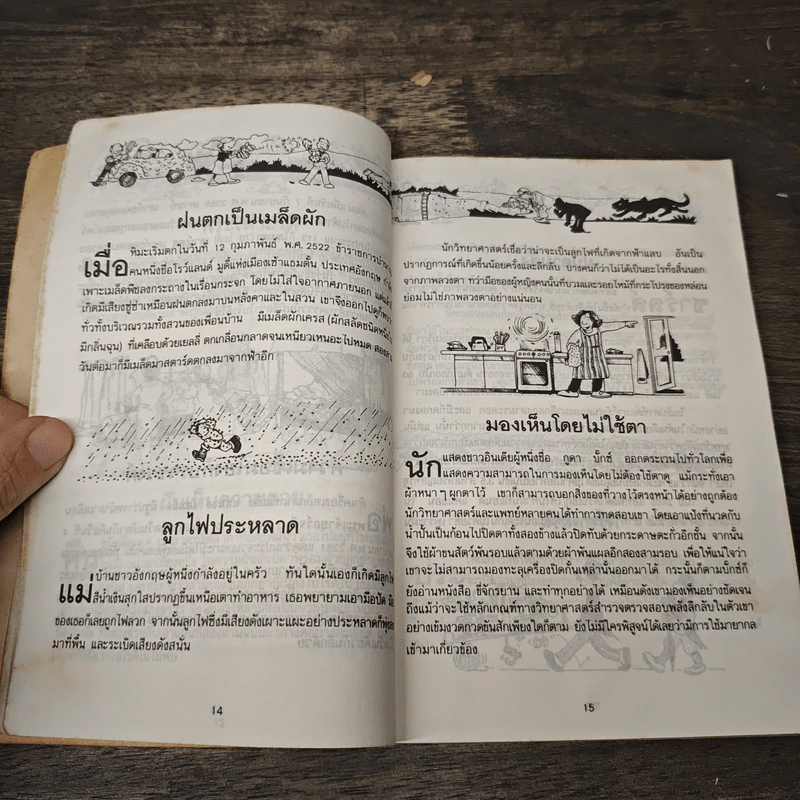 ฝนตกเป็นเมล็ดผัก
เมื่อหิมะเริ่มตกในวันที่ 12 กุมภาพันธ์ พ.ศ. 2522 ข้าราชการบำนาญ
คนหนึ่งชื่อโรว์แลนด์ มูดี้แห่งเมืองเซ้าแธมตั้น ประเทศอังกฤษ
เพาะเมล็ดพืชลงกระถางในเรือนกระจก โดยไม่ใส่ใจอากาศภายนอก แต่แล้ว
เกิดมีเสียงซู่ซ่าเหมือนฝนตกลงมาบนหลังคาและในสวน เขาจึงออกไปดู
ทั่วทั้งบริเวณรวมทั้งสวนของเพื่อนบ้าน มีเมล็ดผักเครส (ผักสลัดชนิดหนึ่ง
มีกลิ่นฉุน) ที่เคลือบด้วยเยลลี่ ตกเกลื่อนกลาดจนเหนียวเหนอะไปหมด
วันต่อมาก็มีเมล็ดมาสตาร์ดตกลงมาจากฟ้าอีก
ลูกไฟประหลาด
แม่บ้านชาวอังกฤษผู้หนึ่งกำลังอยู่ในครัว ทันใดนั้นเองก็เกิดมีลูกไฟ
สีน้ำเงินสุกใสปรากฏขึ้นเหนือเตาทำอาหาร เธอพยายามเอามือปัด
ของเธอก็เลยถูกไฟลวก จากนั้นลูกไฟซึ่งมีเสียงดังเผาะแผะอย่างประหลาดก็พุ่งลง
มาที่พื้น และระเบิดเสียงดังสนั่น
14
นักวิทยาศาสตร์เชื่อว่าน่าจะเป็นลูกไฟที่เกิดจากฟ้าแลบ อันเป็น
ปรากฏการณ์ที่เกิดขึ้นน้อยครั้งและลึกลับ บางคนก็ว่าไม่ได้เป็นอะไรทั้งสิ้นนอก
จากภาพลวงตา ทว่ามือของผู้หญิงคนนั้นที่บวมและรอยไหม้ที่กระโปรงของหล่อน
ย่อมไม่ใช่ภาพลวงตาอย่างแน่นอน
มองเห็นโดยไม่ใช้ตา
นักแสดงชาวอินเดียผู้หนึ่งชื่อ กูดา บั๊กซ์ ออกตระเวนไปทั่วโลกเพื่อ
แสดงความสามารถในการมองเห็นโดยไม่ต้องใช้ตาดู แม้กระทั่งเอา
ผ้าหนา ๆ ผูกตาไว้ เขาก็สามารถบอกสิ่งของที่วางไว้ตรงหน้าได้อย่างถูกต้อง
นักวิทยาศาสตร์และแพทย์หลายคนได้ทำการทดสอบเขา โดยเอาแป้งที่นวดกับ
น้ำปั้นเป็นก้อนไปปิดตาทั้งสองข้างแล้วปิดทับด้วยกระดาษตะกั่วอีกชั้น จากนั้น
จึงใช้ผ้าขนสัตว์พันรอบแล้วตามด้วยผ้าพันแผลอีกสองสามรอบ เพื่อให้แน่ใจว่า
เขาจะไม่สามารถมองทะลุเครื่องปิดกั้นเหล่านั้นออกมาได้ กระนั้นก็ตามบั๊กซ์ก็
ยังอ่านหนังสือ ขี่จักรยาน และทำทุกอย่างได้ เหมือนดังเขามองเห็นอย่างชัดเจน
ถึงแม้ว่าจะใช้หลักเกณฑ์ทางวิทยาศาสตร์สำรวจตรวจสอบพลังลึกลับในตัวเขา
อย่างเข้มงวดกวดขันสักเพียงใดก็ตาม ยังไม่มีใครพิสูจน์ได้เลยว่ามีการใช้มายากล
เข้ามาเกี่ยวข้อง
15